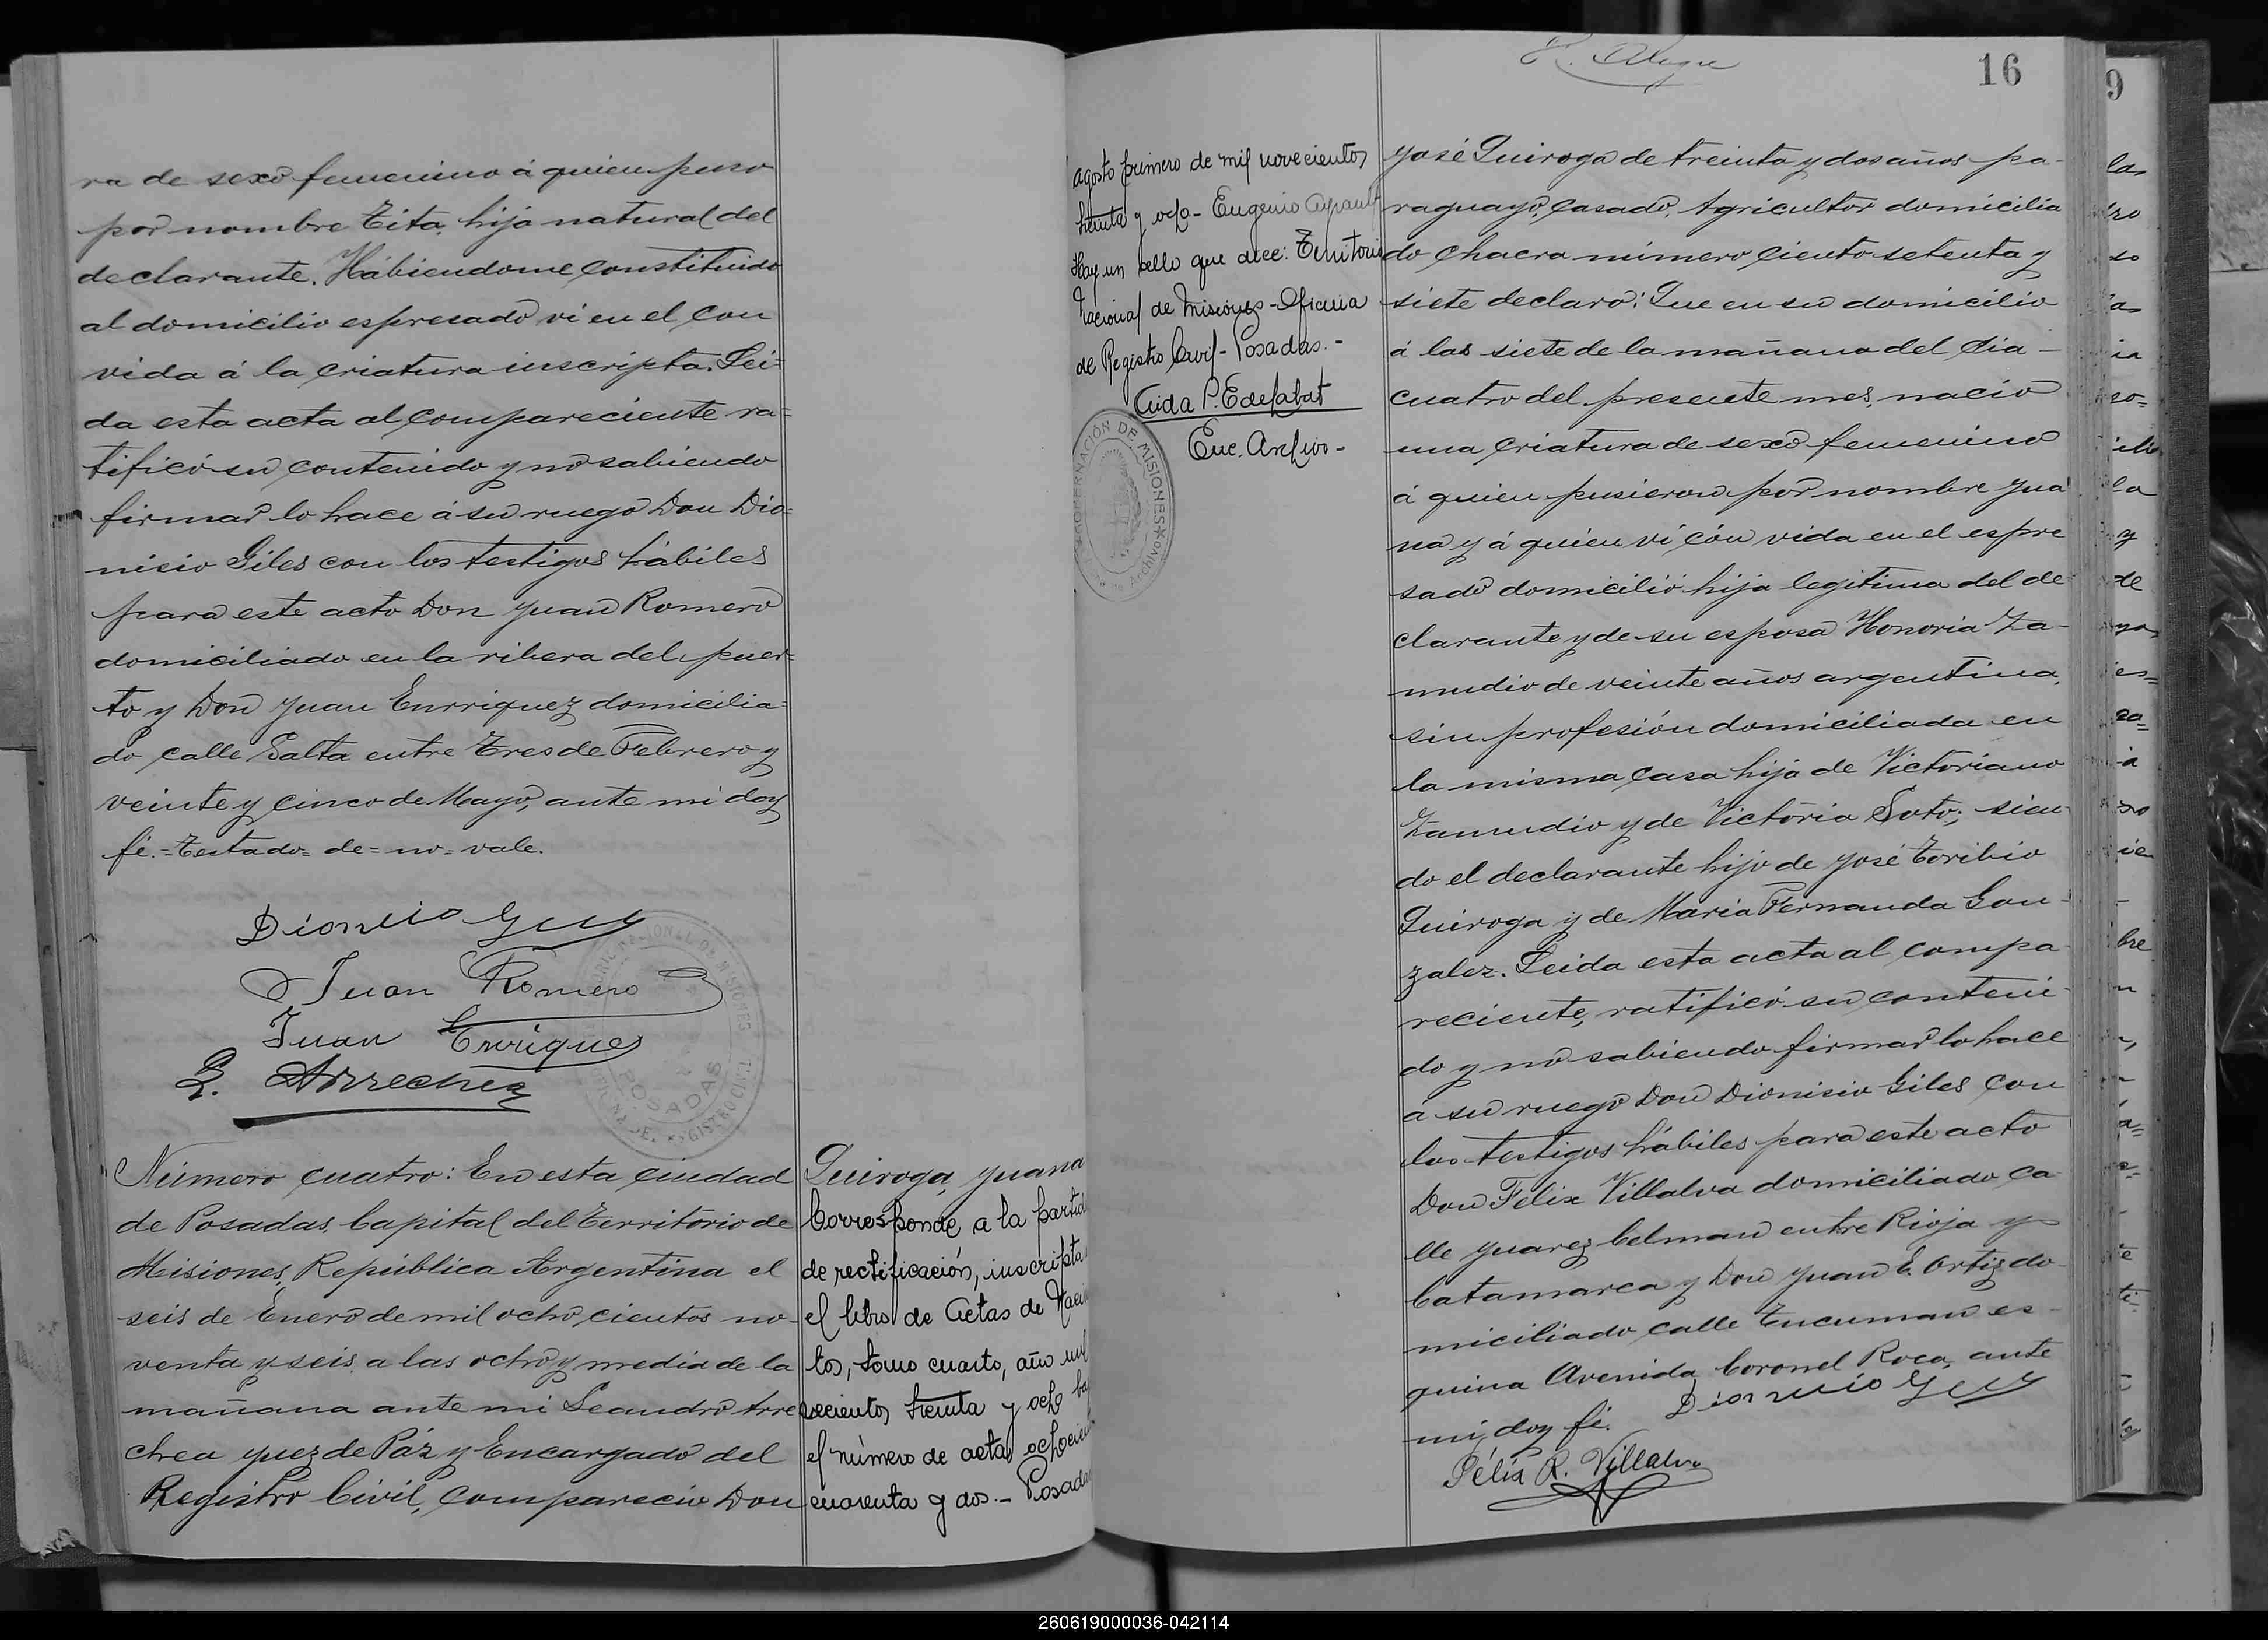 ra de sexo femenino á quien puso
por nombre Tita, hija natural del
declarante. Habiendome constituido
al domicilio espresado vi en el con
vida á la criatura inscripta. Lei=
da esta acta al compareciente ra=
tificó su contenido y no sabiendo
firmar lo hace á su ruego Don Dio=
nisio Giles con los testigos hábiles
para este acto Don Juan Romero
domiciliado en la ribera del puer=
to y Don Juan Enrriquez domicilia=
do calle Salta entre Tres de Febrero y
veinte y cinco de Mayo, ante mi doy
fé.=Testado=de=no=vale.
Dionisio Giles
Juan Romero
Juan Enriquez
L. Arrechea
TERRITORIO NACIONAL DE MISIONES
POSADAS
OFICINA DEL REGISTRO CIVIL
Número cuatro: En esta ciudad
de Posadas, Capital del Territorio de
Misiones, República Argentina el
seis de Enero de mil ocho cientos no-
venta y seis a las ocho y media de la
mañana ante mi Leandro Arre
chea Juez de Páz y Encargado del
Registro Civil, compareció Don
Quiroga, Juana
Corresponde a la partid
de rectificación, inscripta
el libro de Actas de Naci
tos, tomo cuarto, año mil
vecientos treinta y ocho ba
el número de acta ochocien
cuarenta y dos.- Posadas
16
agosto primero de mil novecientos
treinta y ocho- Eugenio
Hay un sello que dice: Territorio
Nacional de Misiones-Oficina
de Registro Civil-Posadas.-
Aida P.
Enc. Archivo-
GOBERNACIÓN DE MISIONES
Archivo
José Quiroga de treinta y dos años pa-
raguayo, casado, Agricultor domicilia
do chacra número ciento setenta y
siete declaró: Que en su domicilio
á las siete de la mañana del dia -
cuatro del presente mes, nació
una criatura de sexo femenino
á quien pusieron por nombre Jua
na y á quien ví cón vida en el espre
sado domicilió hija legitima del de-
clarante y de su esposa Honoria Za-
mudio de veinte años argentina,
sin profesión domiciliada en
la misma casa hija de Victoriano
Zamudio y de Victoria Soto; sien-
do el declarante hijo de José Toribio
Quiroga y de Maria Fernanda Gon-
zalez. Leida esta acta al compa-
reciente, ratificó su conteni-
do y no sabiendo firmar lo hace
á su ruego Don Dionisio Giles con
los testigos hábiles para este acto
Don Félix Villalva domiciliado ca-
lle Juarez Celman entre Rioja y
Catamarca y Don Juan E. Ortiz do-
miciliado calle Tucuman es-
quina Avenida Coronel Roca, ante
mi, doy fé. Dionisio Giles
Félix R. Villalva
9
260619000036-042114